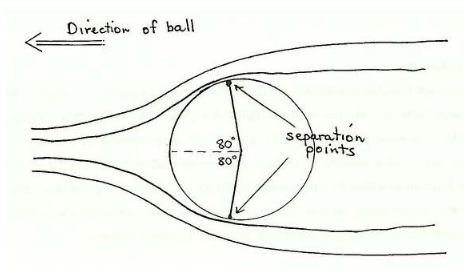 Direction of ball
80°
80°
separation
points